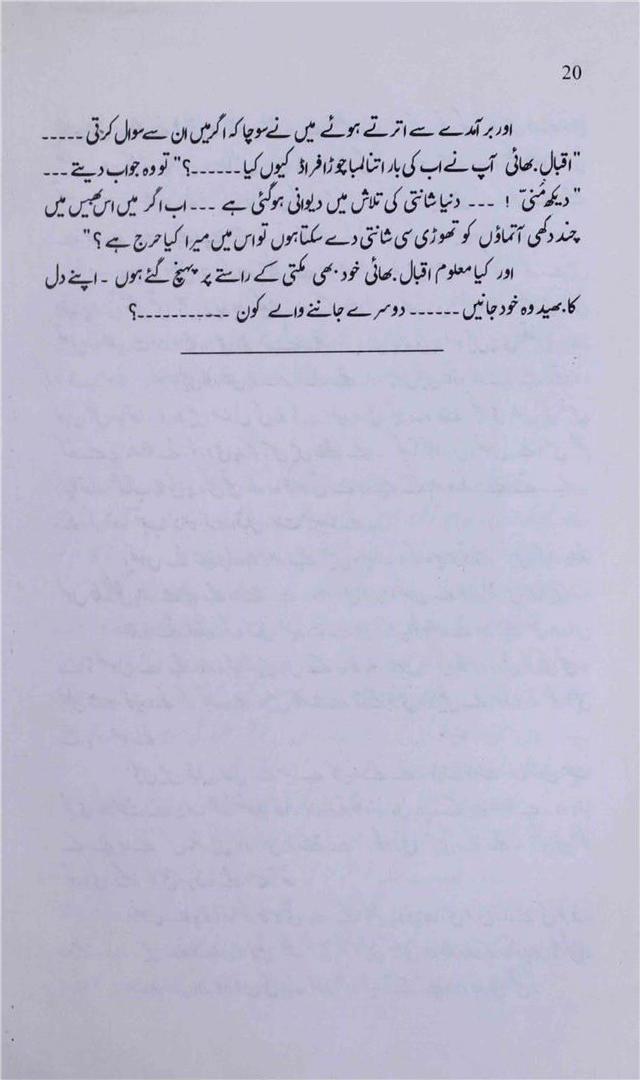 20
اور برآمدے سے اترتے ہوئے میں نے سوچا کہ اگر میں ان سے سوال کرتی -----
"اقبال بھائی آپ نے اب کی بار اتنا لمبا چوڑا فراڈ کیوں کیا ------؟" تو وہ جواب دیتے ---
"دیکھ مُنیّ ! --- دنیا شانتی کی تلاش میں دیوانی ہوگئی ہے --- اب اگر میں اس بھیس میں
چند دکھی آتماؤں کو تھوڑی سی شانتی دے سکتا ہوں تو اس میں میرا کیا حرج ہے ؟"
اور کیا معلوم اقبال بھائی خود بھی مکتی کے راستے پر پہنچ گئے ہوں ۔ اپنے دل
کا بھید وہ خود جانیں ------ دوسرے جاننے والے کون ----------؟